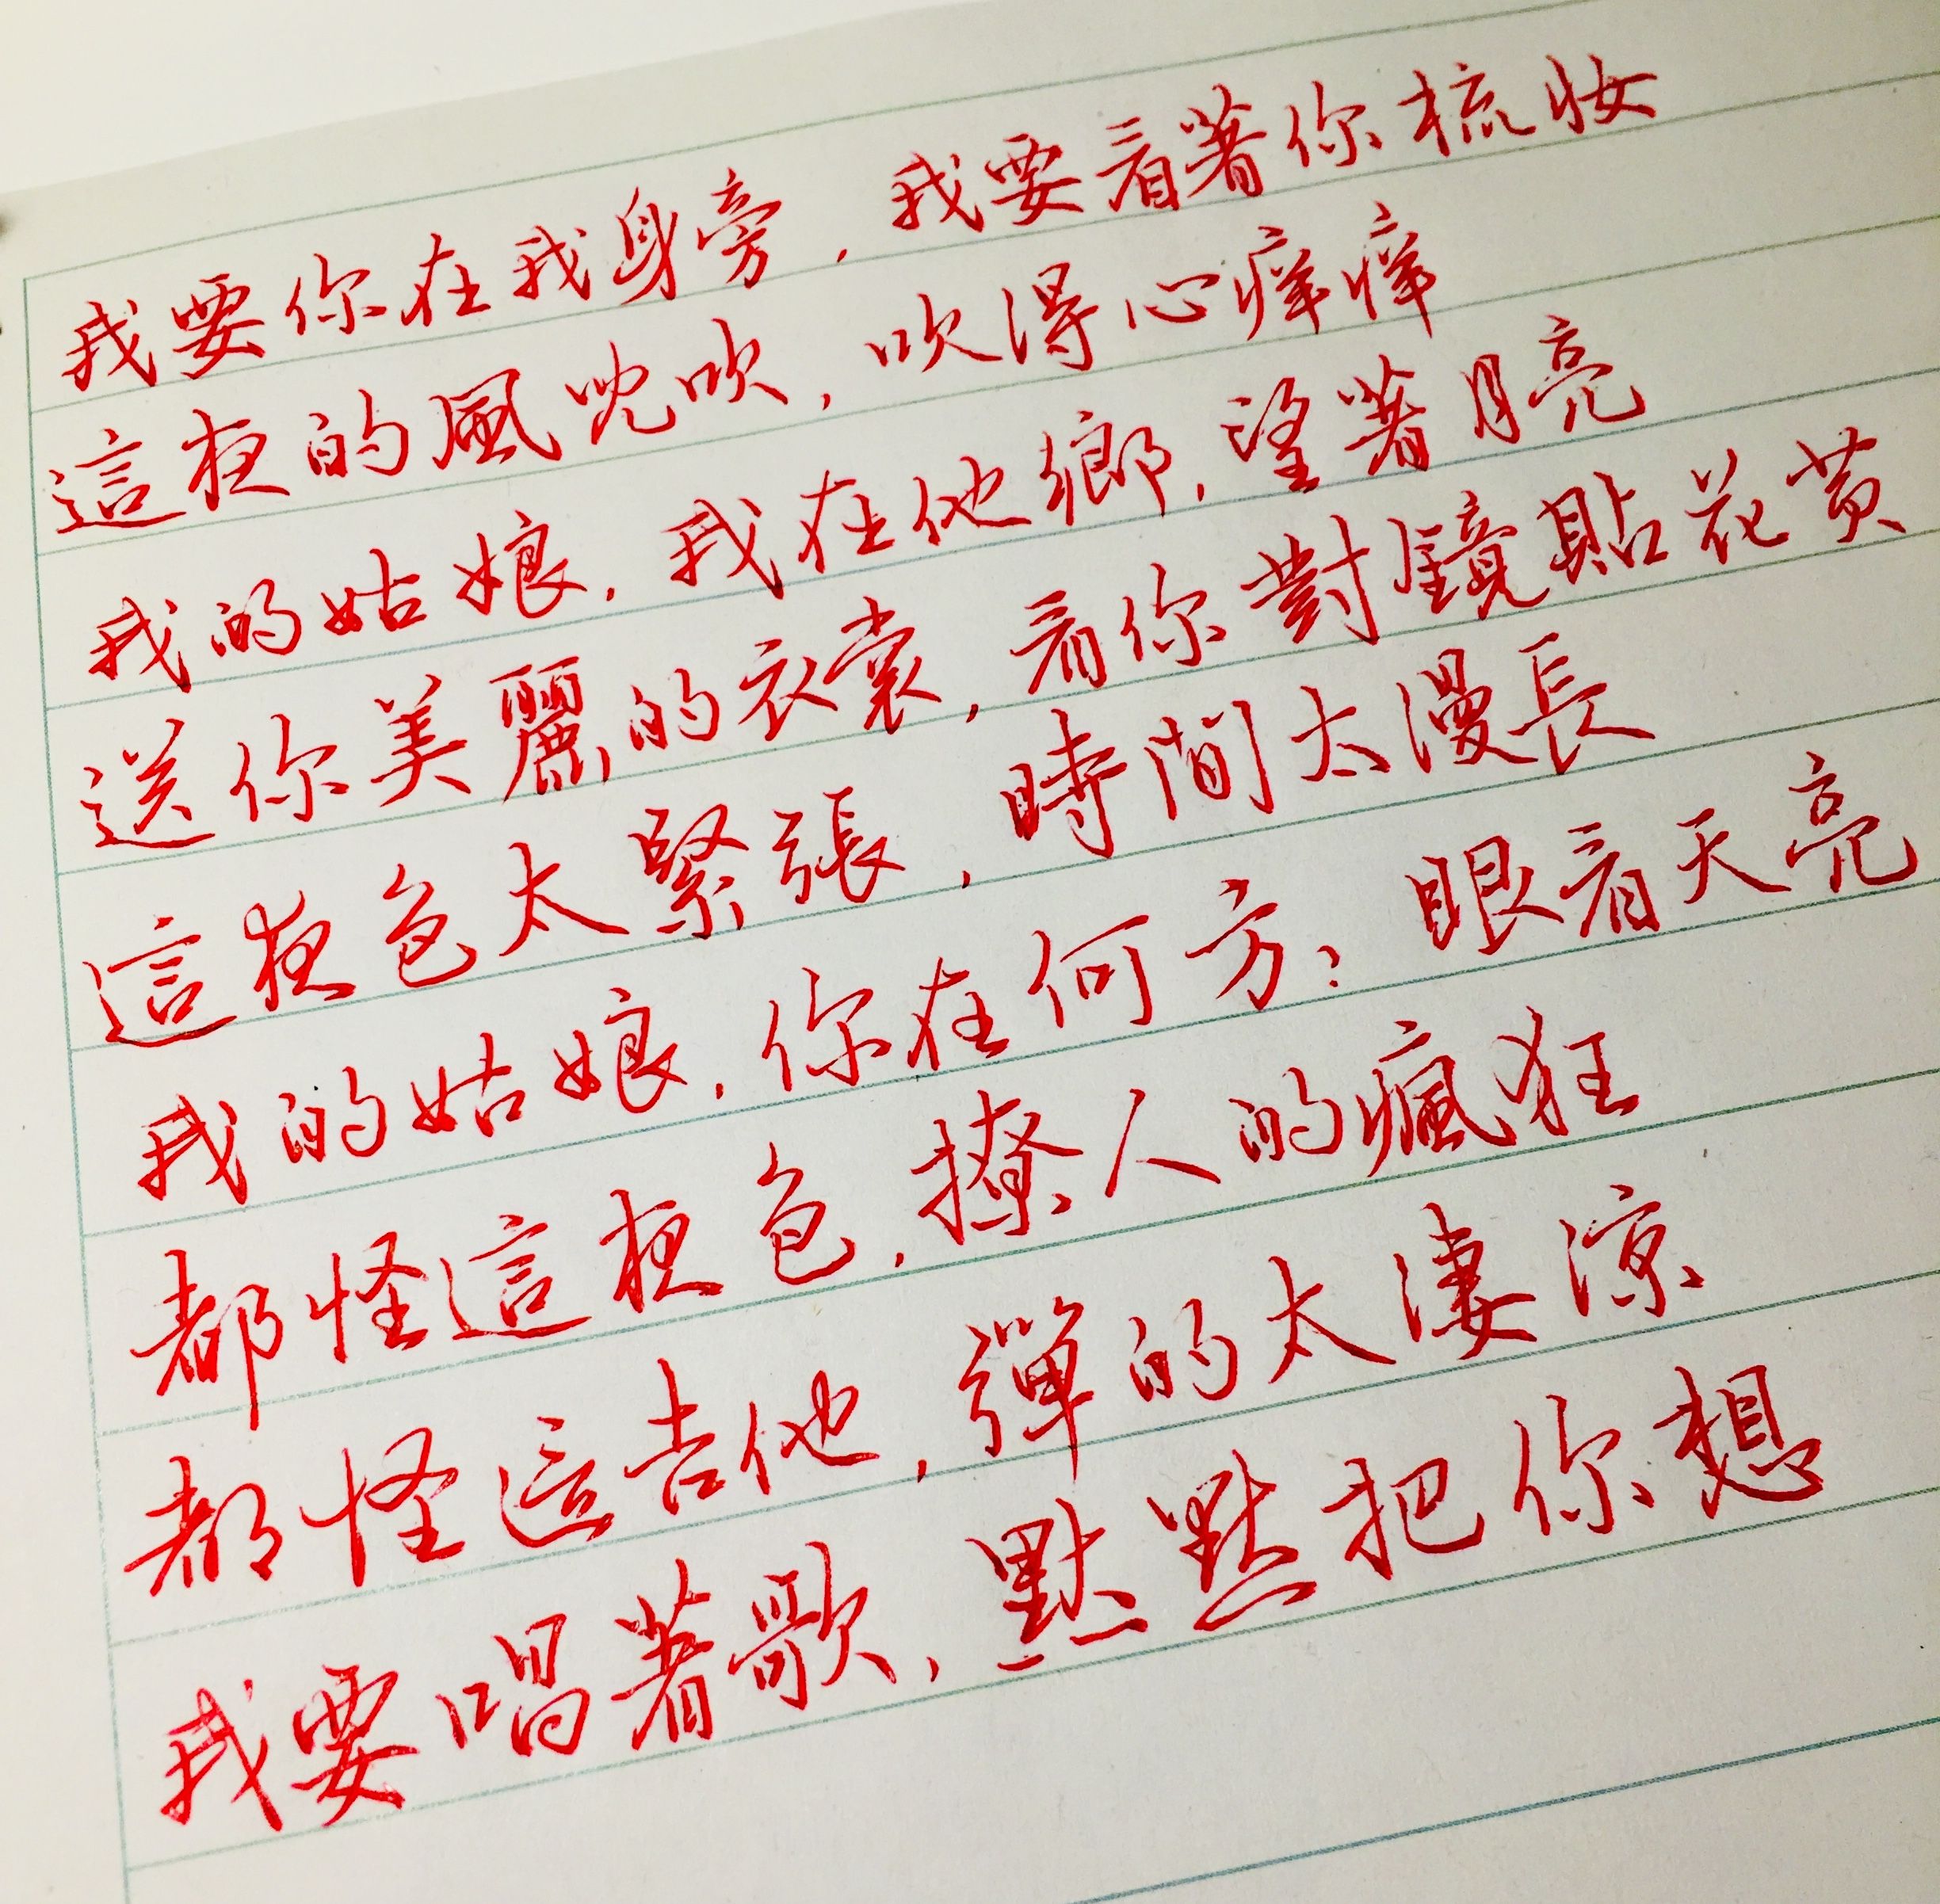 我要你在我身旁，我要看著你梳妆
這夜的風兒吹，吹得心痒痒
我的姑娘，我在他鄉，望著月亮
送你美麗的衣裳，看你對鏡貼花黃
這夜色太緊張，時間太漫長
我的姑娘，你在何方；眼看天亮
都怪這夜色，撩人的瘋狂
都怪這吉他，彈的太淒涼
我要唱著歌，默默把你想